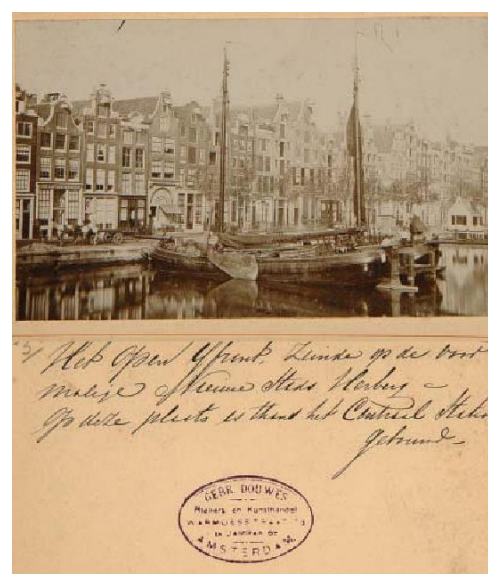 Het Open Yfront, Zeinde op de voor
malige Nieuwe Stads Herberg –
Op deze plaats is thans het Centraal Statio
gebouwd –
GEBR. DOUWES
Ateliers en Kunsthandel
WARMOESSTRAAT
AMSTERDAM.